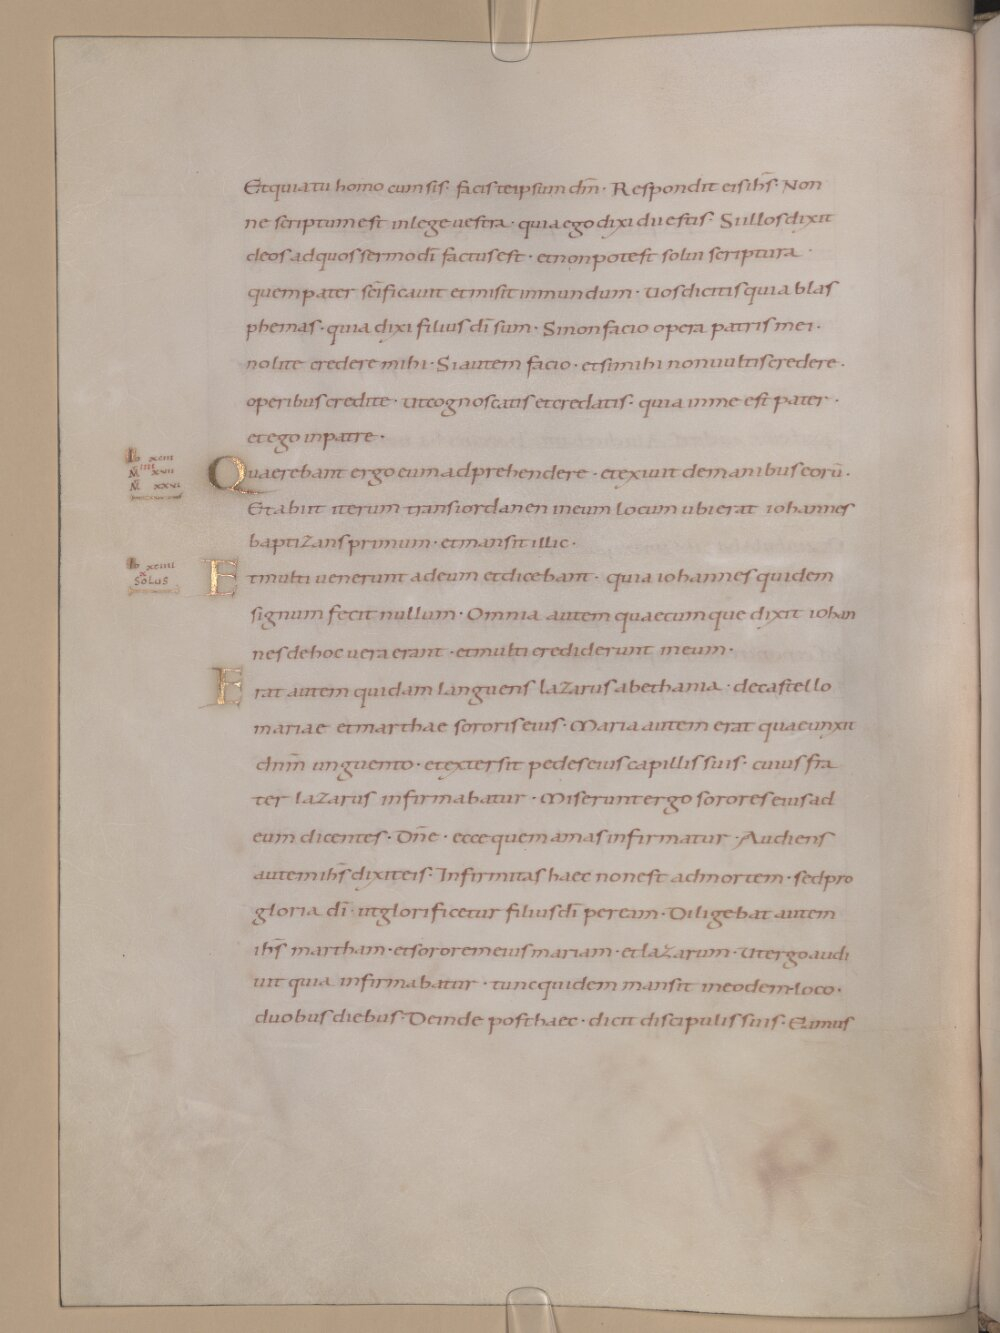 Et quia tu homo cum sis· facis te ipsum dm̄· Respondit eis ihs̄· Non
ne scriptum est in lege uestra· quia ego dixi dii estis· Si illos dixit
deos ad quos sermo dī factus est· et non potest solui scriptura·
quem pater scīficauit et misit in mundum· Uos dicitis quia blas
phemas· quia dixi filius dī sum· Si non facio opera patris mei·
nolite credere mihi· Si autem facio· et si mihi non uultis credere·
operibus credite· ut cognoscatis et credatis· quia in me est pater·
et ego in patre·
Quaerebant ergo eum adprehendere· et exiuit de manibus eorū·
Et abiit iterum trans iordanen in eum locum ubi erat iohannes
baptizans primum· et mansit illic·
SOLUS
Et multi uenerunt ad eum et dicebant· quia iohannes quidem
signum fecit nullum· Omnia autem quaecumque dixit iohan
nes de hoc uera erant· et multi crediderunt in eum·
Erat autem quidam languens lazarus a bethania· de castello
mariae et marthae sororis eius· Maria autem erat quae unxit
dnm̄ unguento· et extersit pedes eius capillis suis· cuius fra
ter lazarus infirmabatur· Miserunt ergo sorores eius ad
eum dicentes· Dn̄e· ecce quem amas infirmatur· Audiens
autem ihs̄ dixit eis· Infirmitas haec non est ad mortem· sed pro
gloria dī· ut glorificetur filius dī per eum· Diligebat autem
ihs̄ martham· et sororem eius mariam· et lazarum· Ut ergo audi
uit quia infirmabatur· tunc quidem mansit in eodem loco·
duobus diebus· Deinde post haec· dicit discipulis suis· Eamus